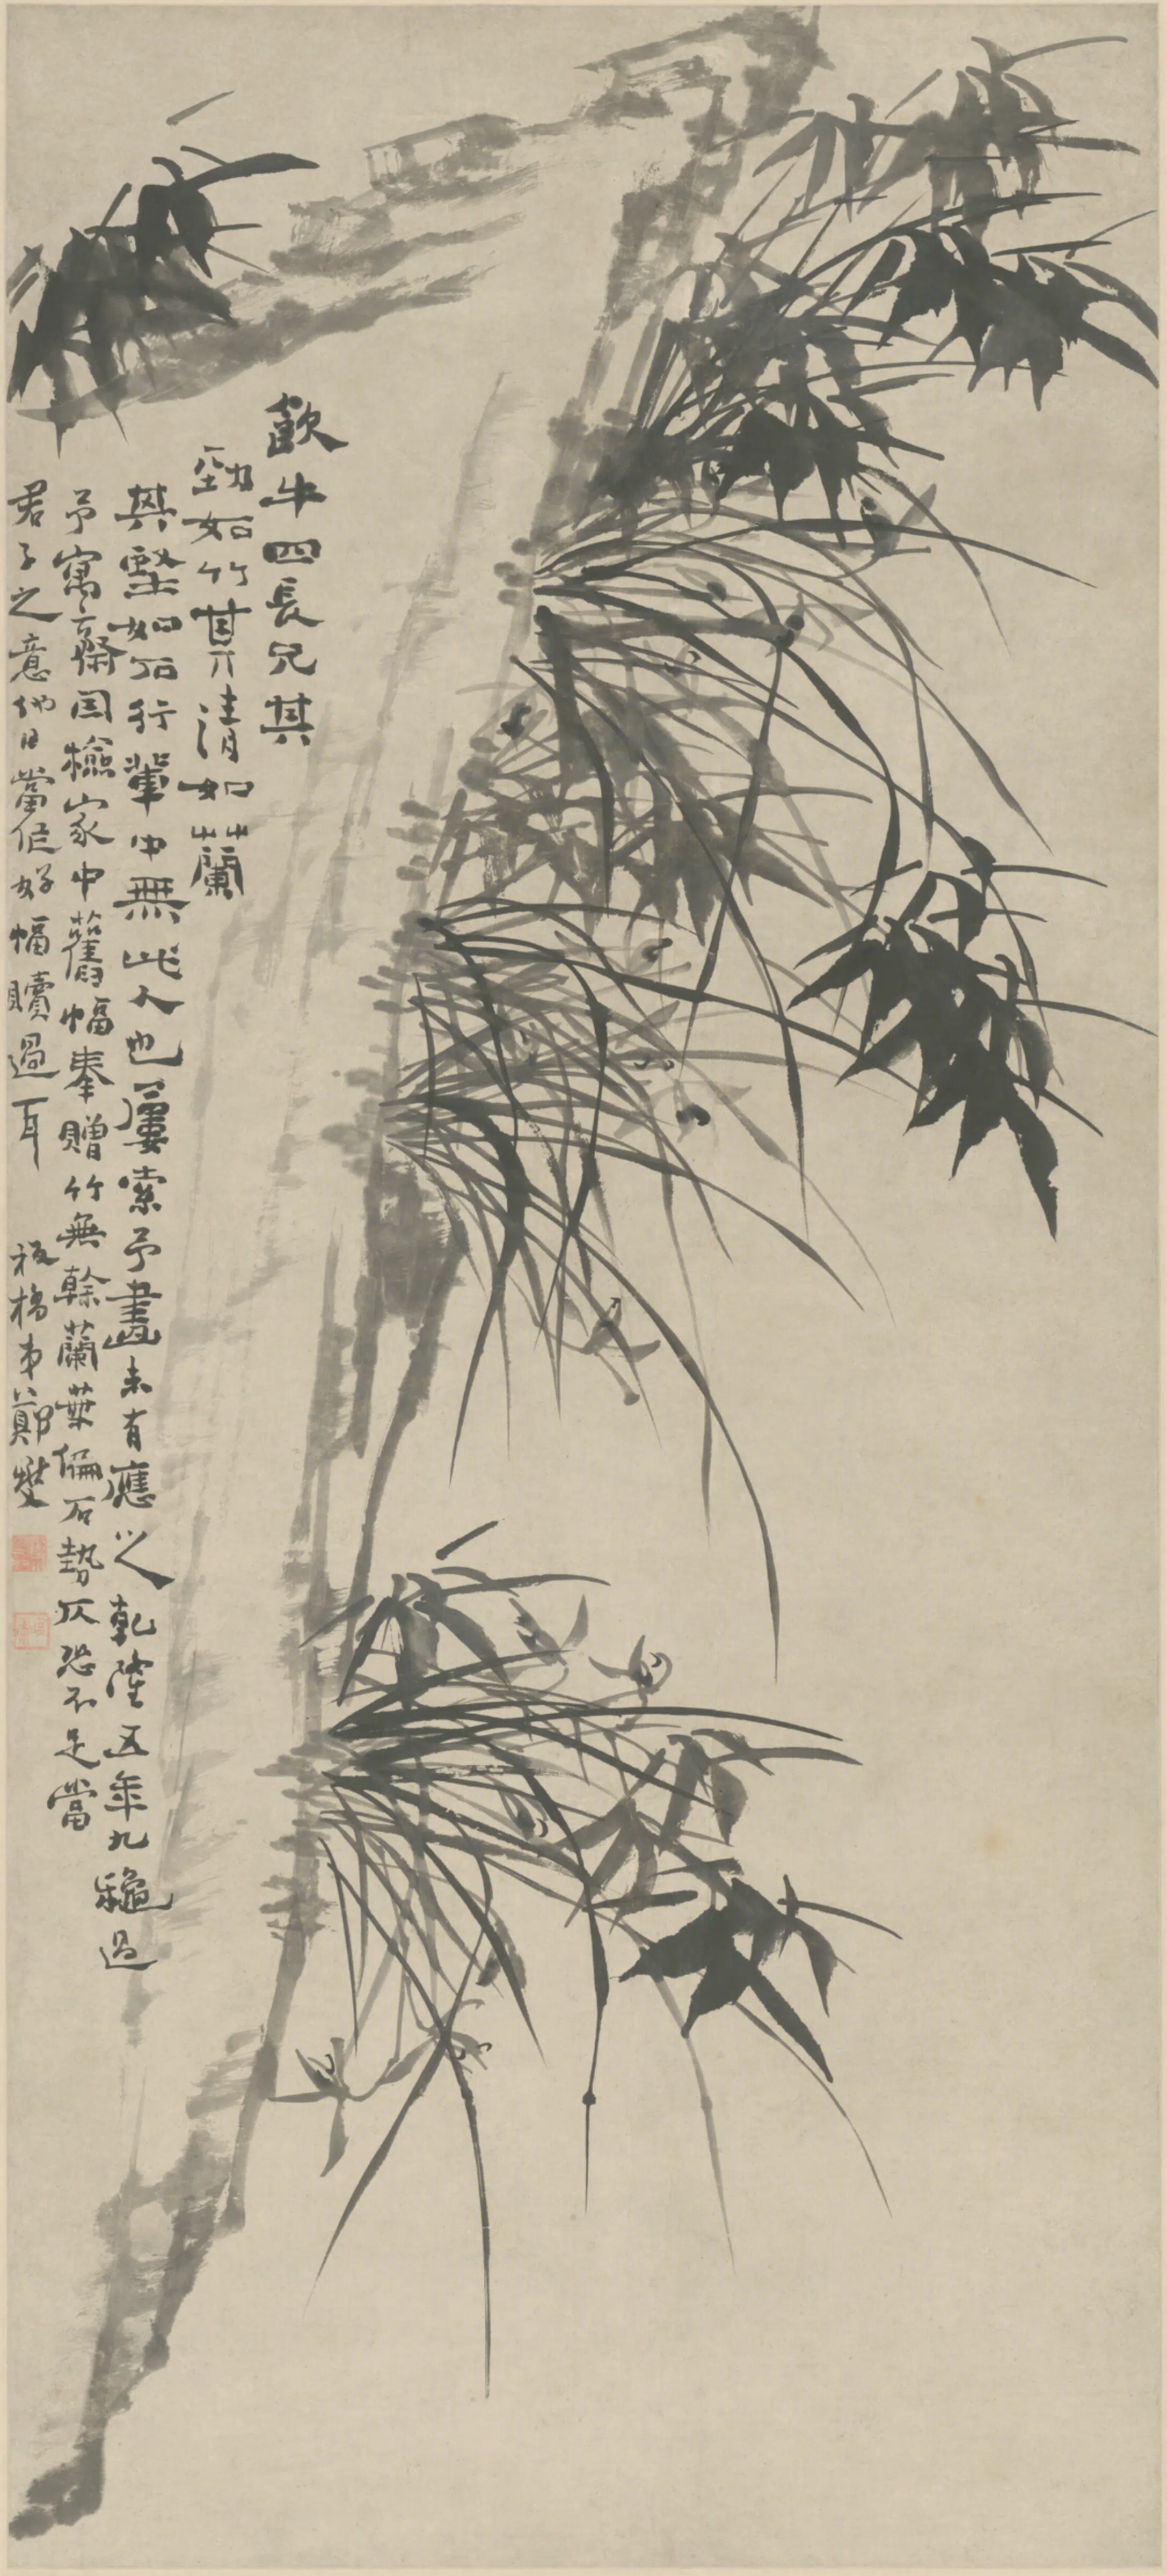 飲牛四長兄其
勁如竹其清如蘭
其堅如石行輩中無此人也屢索予畫未有應之乾隆五年九龝過
予寓齋因檢家中舊幅奉贈竹無榦蘭葉偏石勢仄恐不足當
君子之意他日當作好幅贖過耳 板橋弟鄭燮